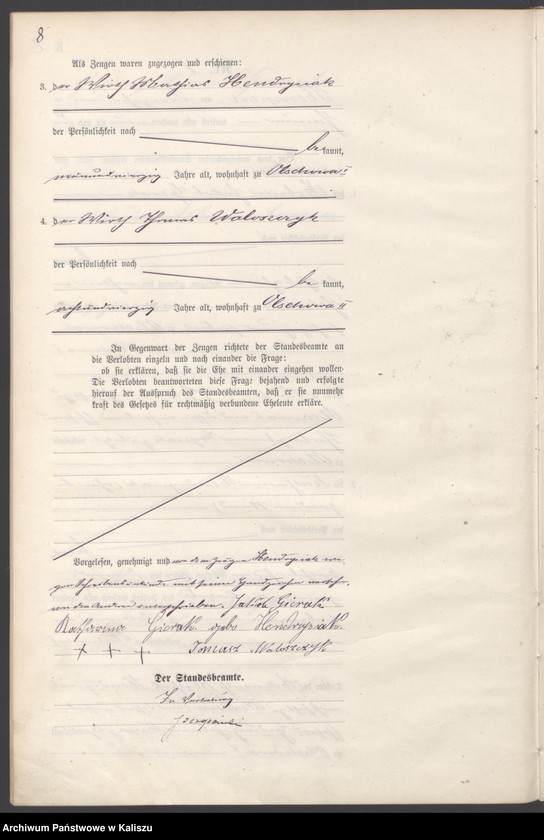 8
Als Zeugen waren zugezogen und erschienen:
3. der Wirth Mathias Hendrysiak
der Persönlichkeit nach
be kannt,
neunundvierzig Jahre alt, wohnhaft zu Olschowa I
4. der Wirth Thomas Waloszczyk
der Persönlichkeit nach
be kannt,
achtundvierzig Jahre alt, wohnhaft zu Olschowa II
In Gegenwart der Zeugen richtete der Standesbeamte an
die Verlobten einzeln und nach einander die Frage:
ob sie erklären, daß sie die Ehe mit einander eingehen wollen.
Die Verlobten beantworteten diese Frage bejahend und erfolgte
hierauf der Ausspruch des Standesbeamten, daß er sie nunmehr
kraft des Gesetzes für rechtmäßig verbundene Eheleute erkläre.
Vorgelesen, genehmigt und von dem Zeugen Hendrysiak we-
gen Schreibensunkunde mit seinem Handzeichen versehen,
von den Anderen unterschrieben. Jakob Gierak
Katharina Gierak geb. Hendrysiak.
+ + + Tomasz Waloszczyk
Der Standesbeamte.
In Vertretung
Archiwum Państwowe w Kaliszu